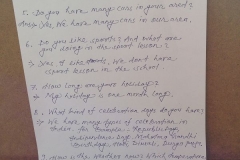 5. Do you have many cars in your area?
Ans→ Yes, We have many cars in our area.
6. Do you like sports? And what are you doing in the sport lesson?
→ Yes I like, We don't have sport lesson in the school
7. How long are your holidays?
→ My holidays is one month long.
8. What kind of celebration days do you have?
→ We have many types of celebration in India for example: Republic day, Independence Day, Mahatma Gandhi Birthday, Diwali, Durga puja
9. How is the weather